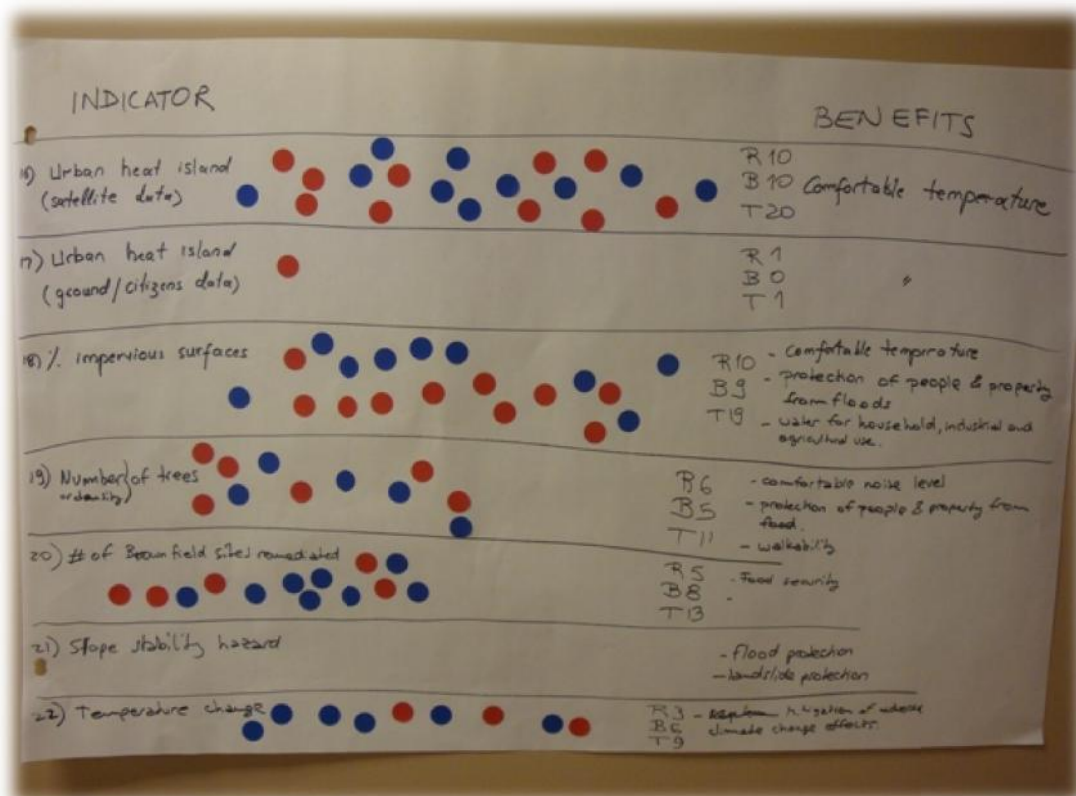 INDICATOR
BENEFITS
16) Urban heat island
(satellite data)
R 10
B 10
T 20
Comfortable temperature
17) Urban heat island
(ground/citizens data)
R 1
B 0
T 1
"
18) % impervious surfaces
R10
B9
T19
- comfortable temperature
- protection of people & property
from floods
- water for household, industrial and
agricultural use.
19) Number of trees
or density
R6
B5
T11
- comfortable noise level
- protection of people & property from
flood.
- walkability
20) # of Brownfield sites remediated
R5
B8
T13
- Food security
-
21) Slope stability hazard
- flood protection
- landslide protection
22) Temperature change
R3
B6
T9
- mitigation of adverse
climate change effects.